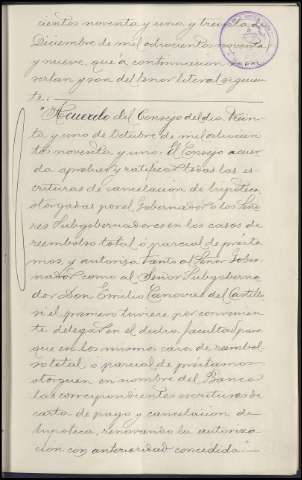 cientos noventa y uno y treinta de
Diciembre de mil ochocientos noventa
y nueve, que a continuacion se in-
sertan y son del tenor literal siguien-
te:
"Acuerdo del Consejo del dia Trein-
ta y uno de Octubre de mil ochocien-
tos noventa y uno: El Consejo acuer-
da aprobar y ratificar todas las es-
crituras de cancelacion de hipoteca
otorgadas por el Gobernador o los Seño-
res Subgobernadores en los casos de
reembolso total o parcial de présta-
mos, y autoriza tanto al Señor Gober-
nador como al Señor Subgoberna-
dor Don Emilio Canovas del Castillo
si el primero tuviere por convenien-
te delegar en el dicha facultad para
que en los mismos casos de reembol-
so total o parcial de préstamos
otorguen en nombre del Banco
las correspondientes escrituras de
carta de pago y cancelacion de
hipoteca, renovando la autoriza-
cion con anterioridad concedida: